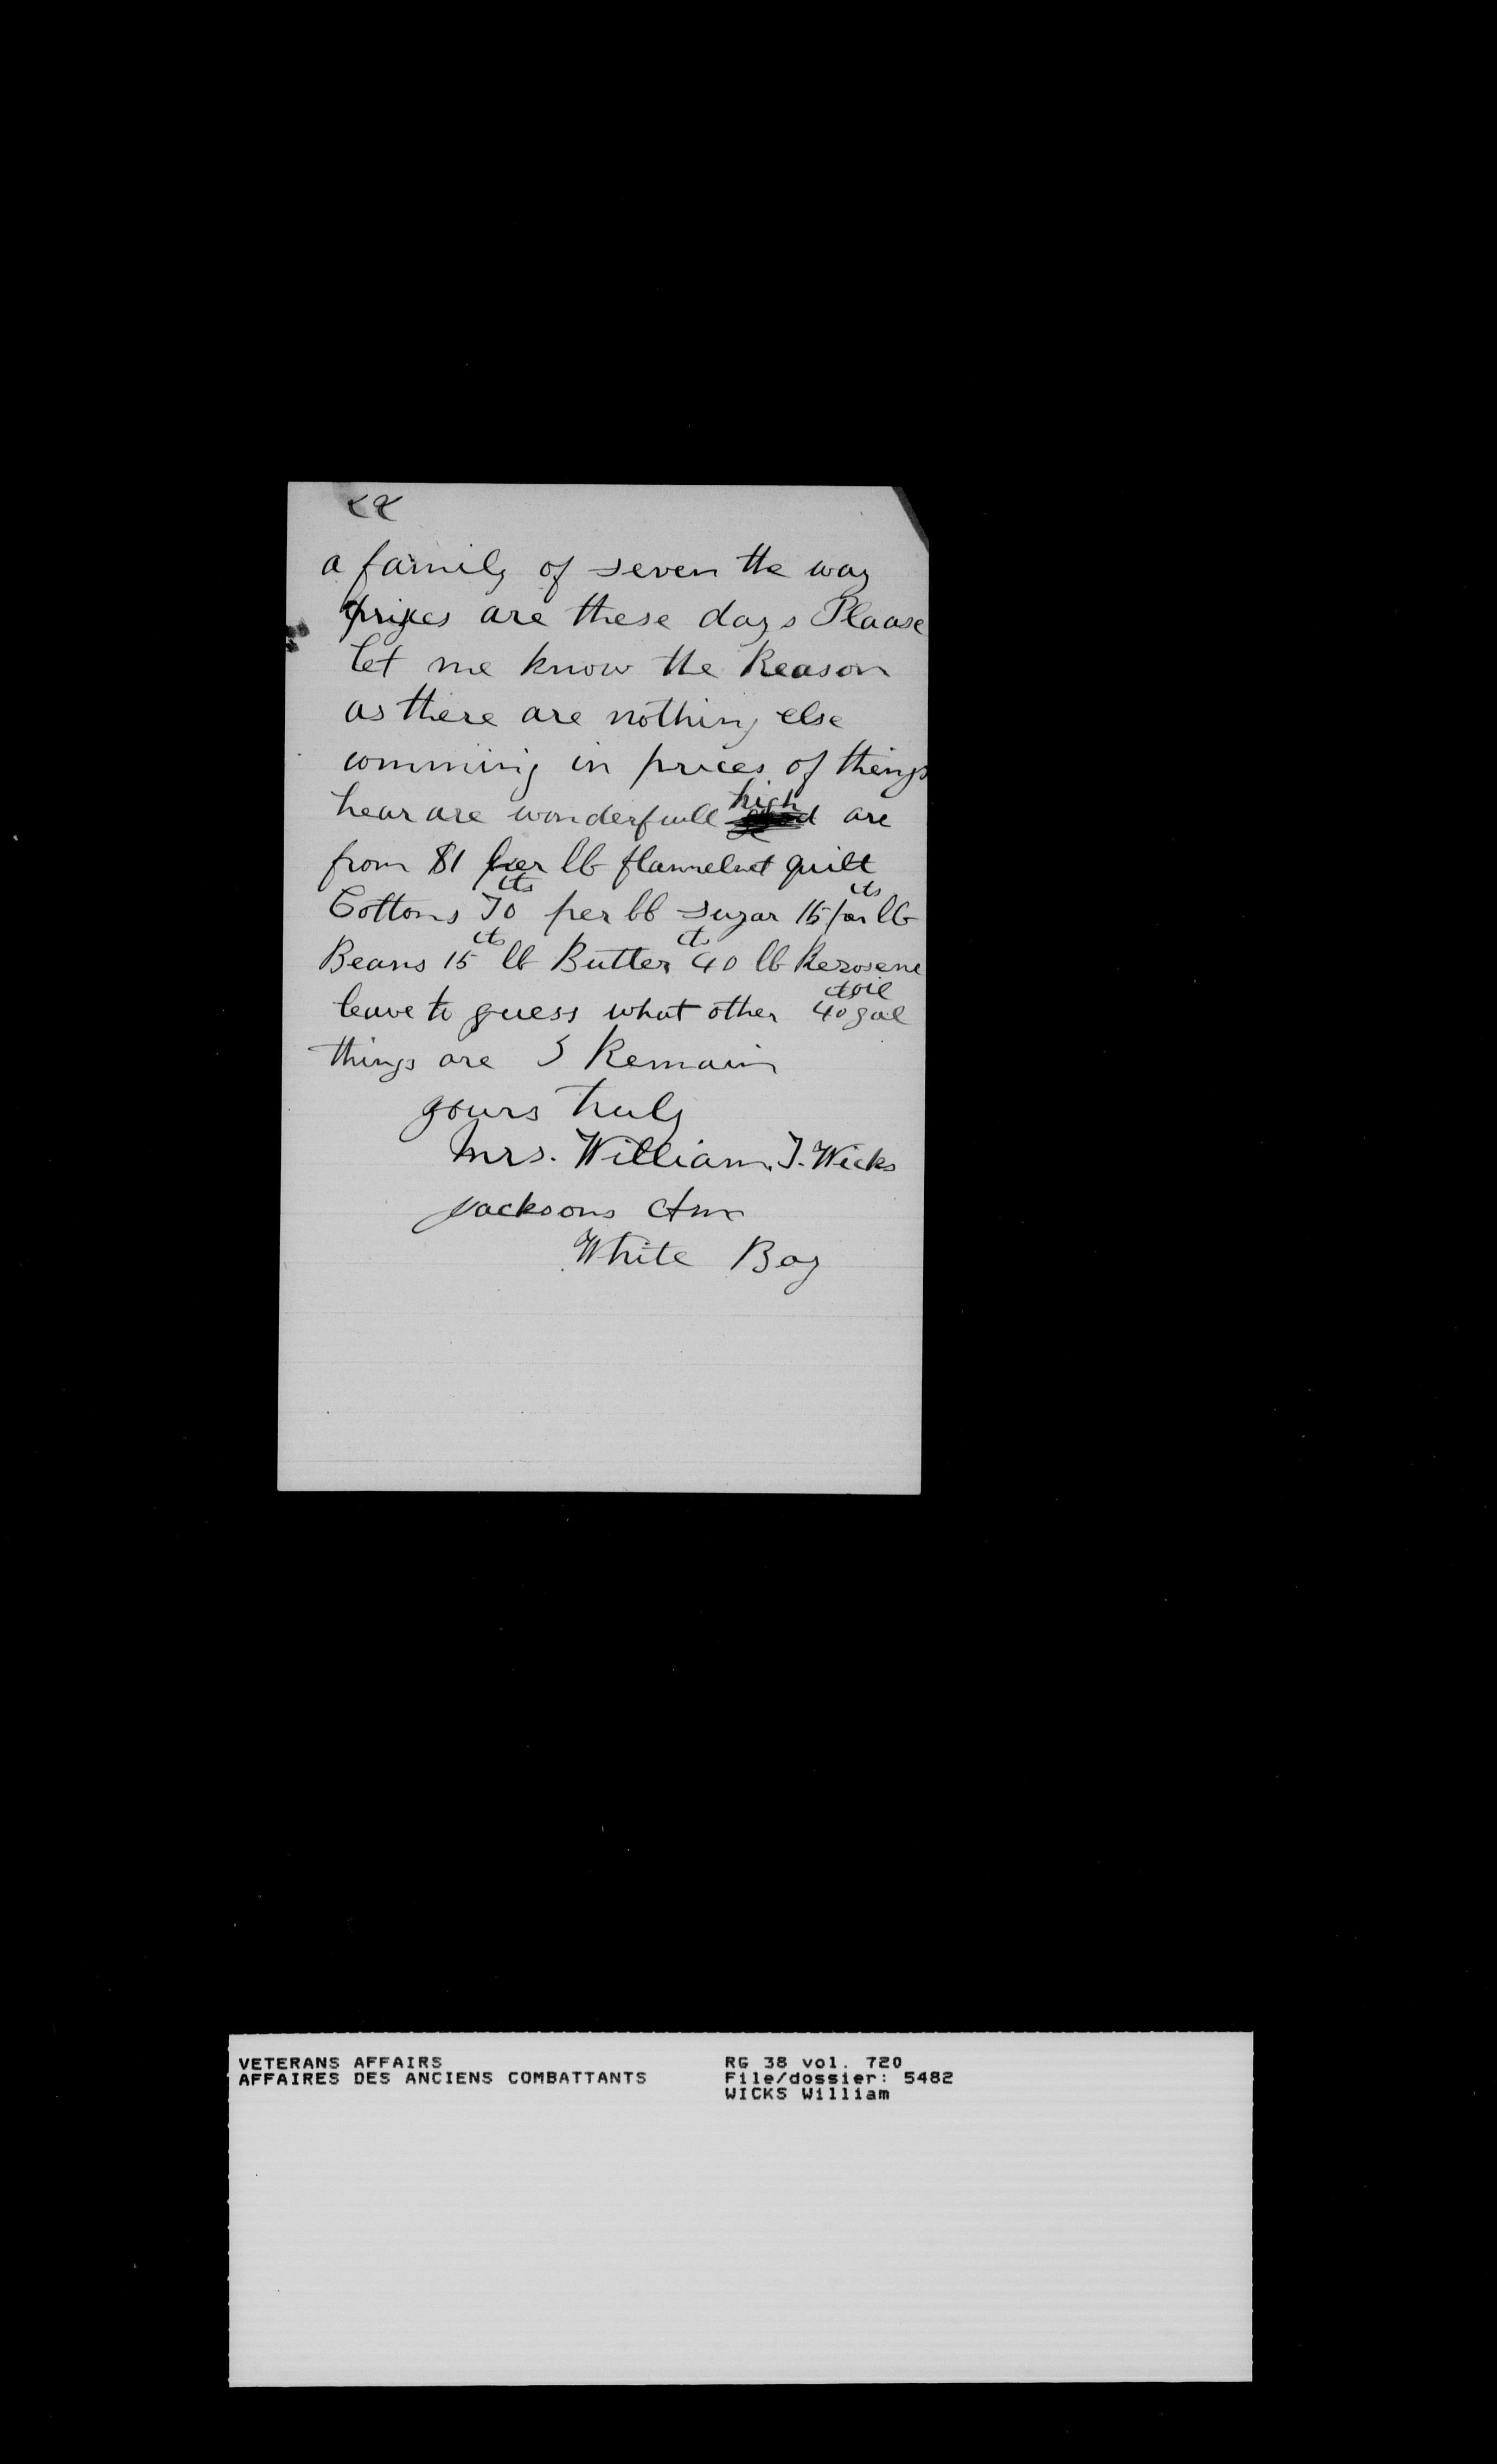 a family of seven the way
prises are these days Plaase
let me know the Reason
as there are nothing else
comming in prices of things
hear are wonderfull high are
from $1 per lb flannelnet quilt
Cottons 70 cts per lb sugar 15 cts per lb
Beans 15 cts lb Butter 40 cts lb Kerosene
oil 40 ct gal
leave to guess what other
things are I Remain
yours truly
Mrs. William. J. Wicks
Jacksons Arm
White Bay
VETERANS AFFAIRS
AFFAIRES DES ANCIENS COMBATTANTS
RG 38 vol. 720
File/dossier: 5482
WICKS William